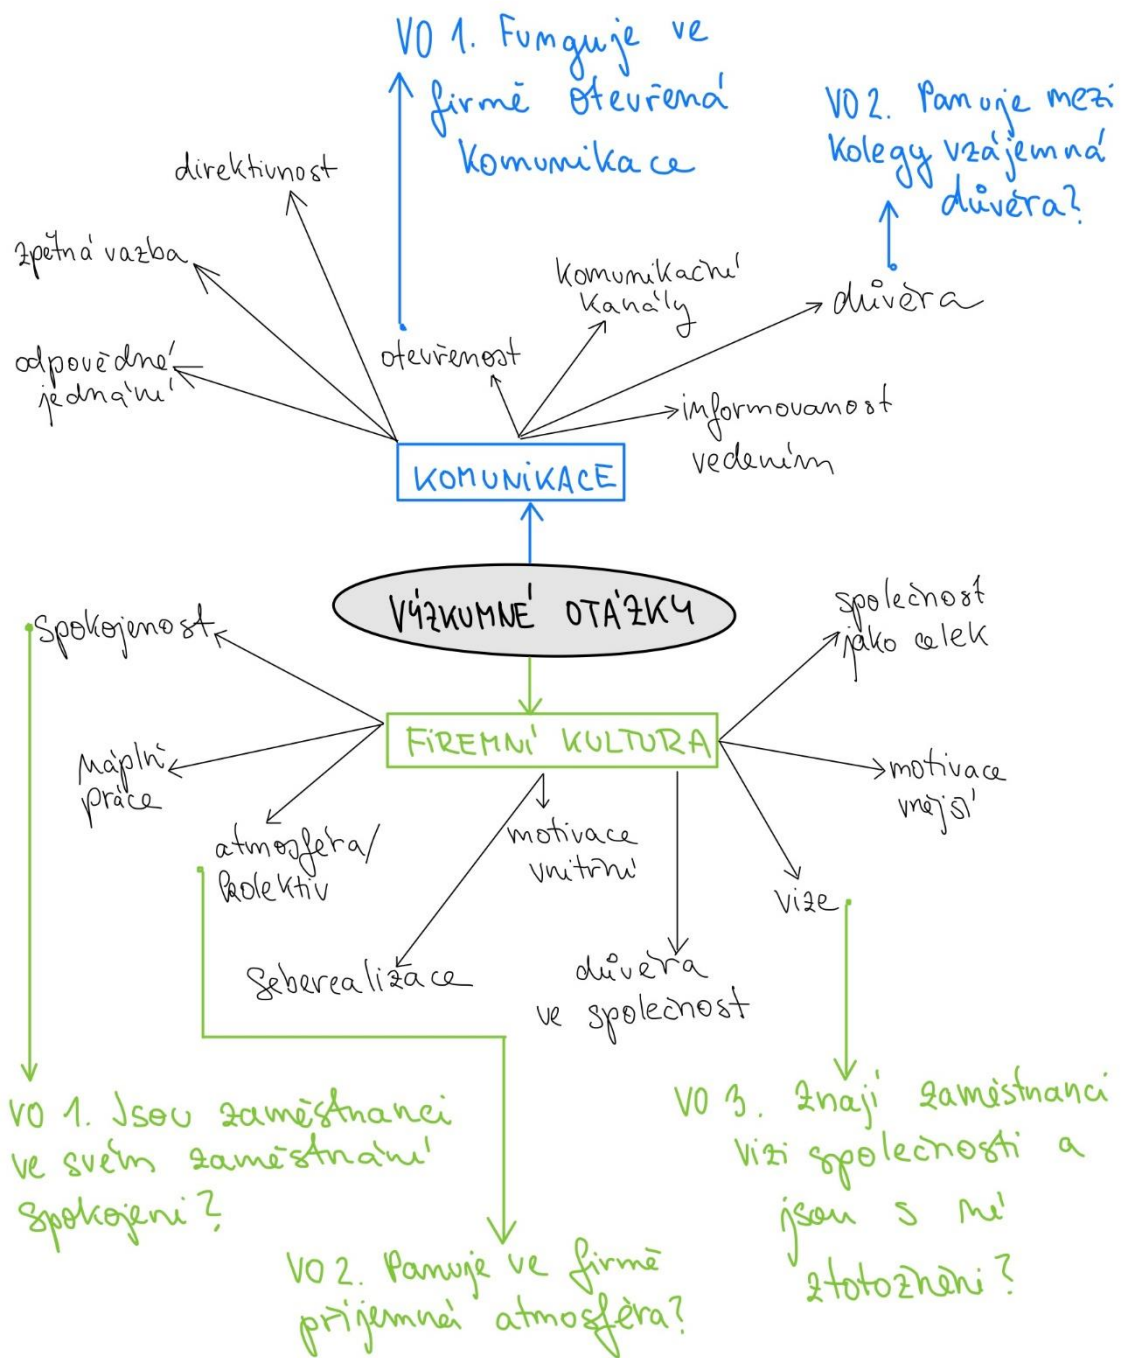 VO 1. Funguje ve
firmě otevřená
komunikace
VO 2. Panuje mezi
kolegy vzájemná
důvěra?
direktivnost
zpětná vazba
odpovědné
jednání
otevřenost
komunikační
kanály
důvěra
informovanost
vedením
KOMUNIKACE
VÝZKUMNÉ OTÁZKY
FIREMNÍ KULTURA
spokojenost
náplň
práce
atmosféra/
kolektiv
seberealizace
motivace
vnitřní
důvěra
ve společnost
společnost
jako celek
motivace
vnější
vize
VO 1. Jsou zaměstnanci
ve svém zaměstnání
spokojeni?
VO 2. Panuje ve firmě
příjemná atmosféra?
VO 3. Znají zaměstnanci
vizi společnosti a
jsou s ní
ztotožněni?